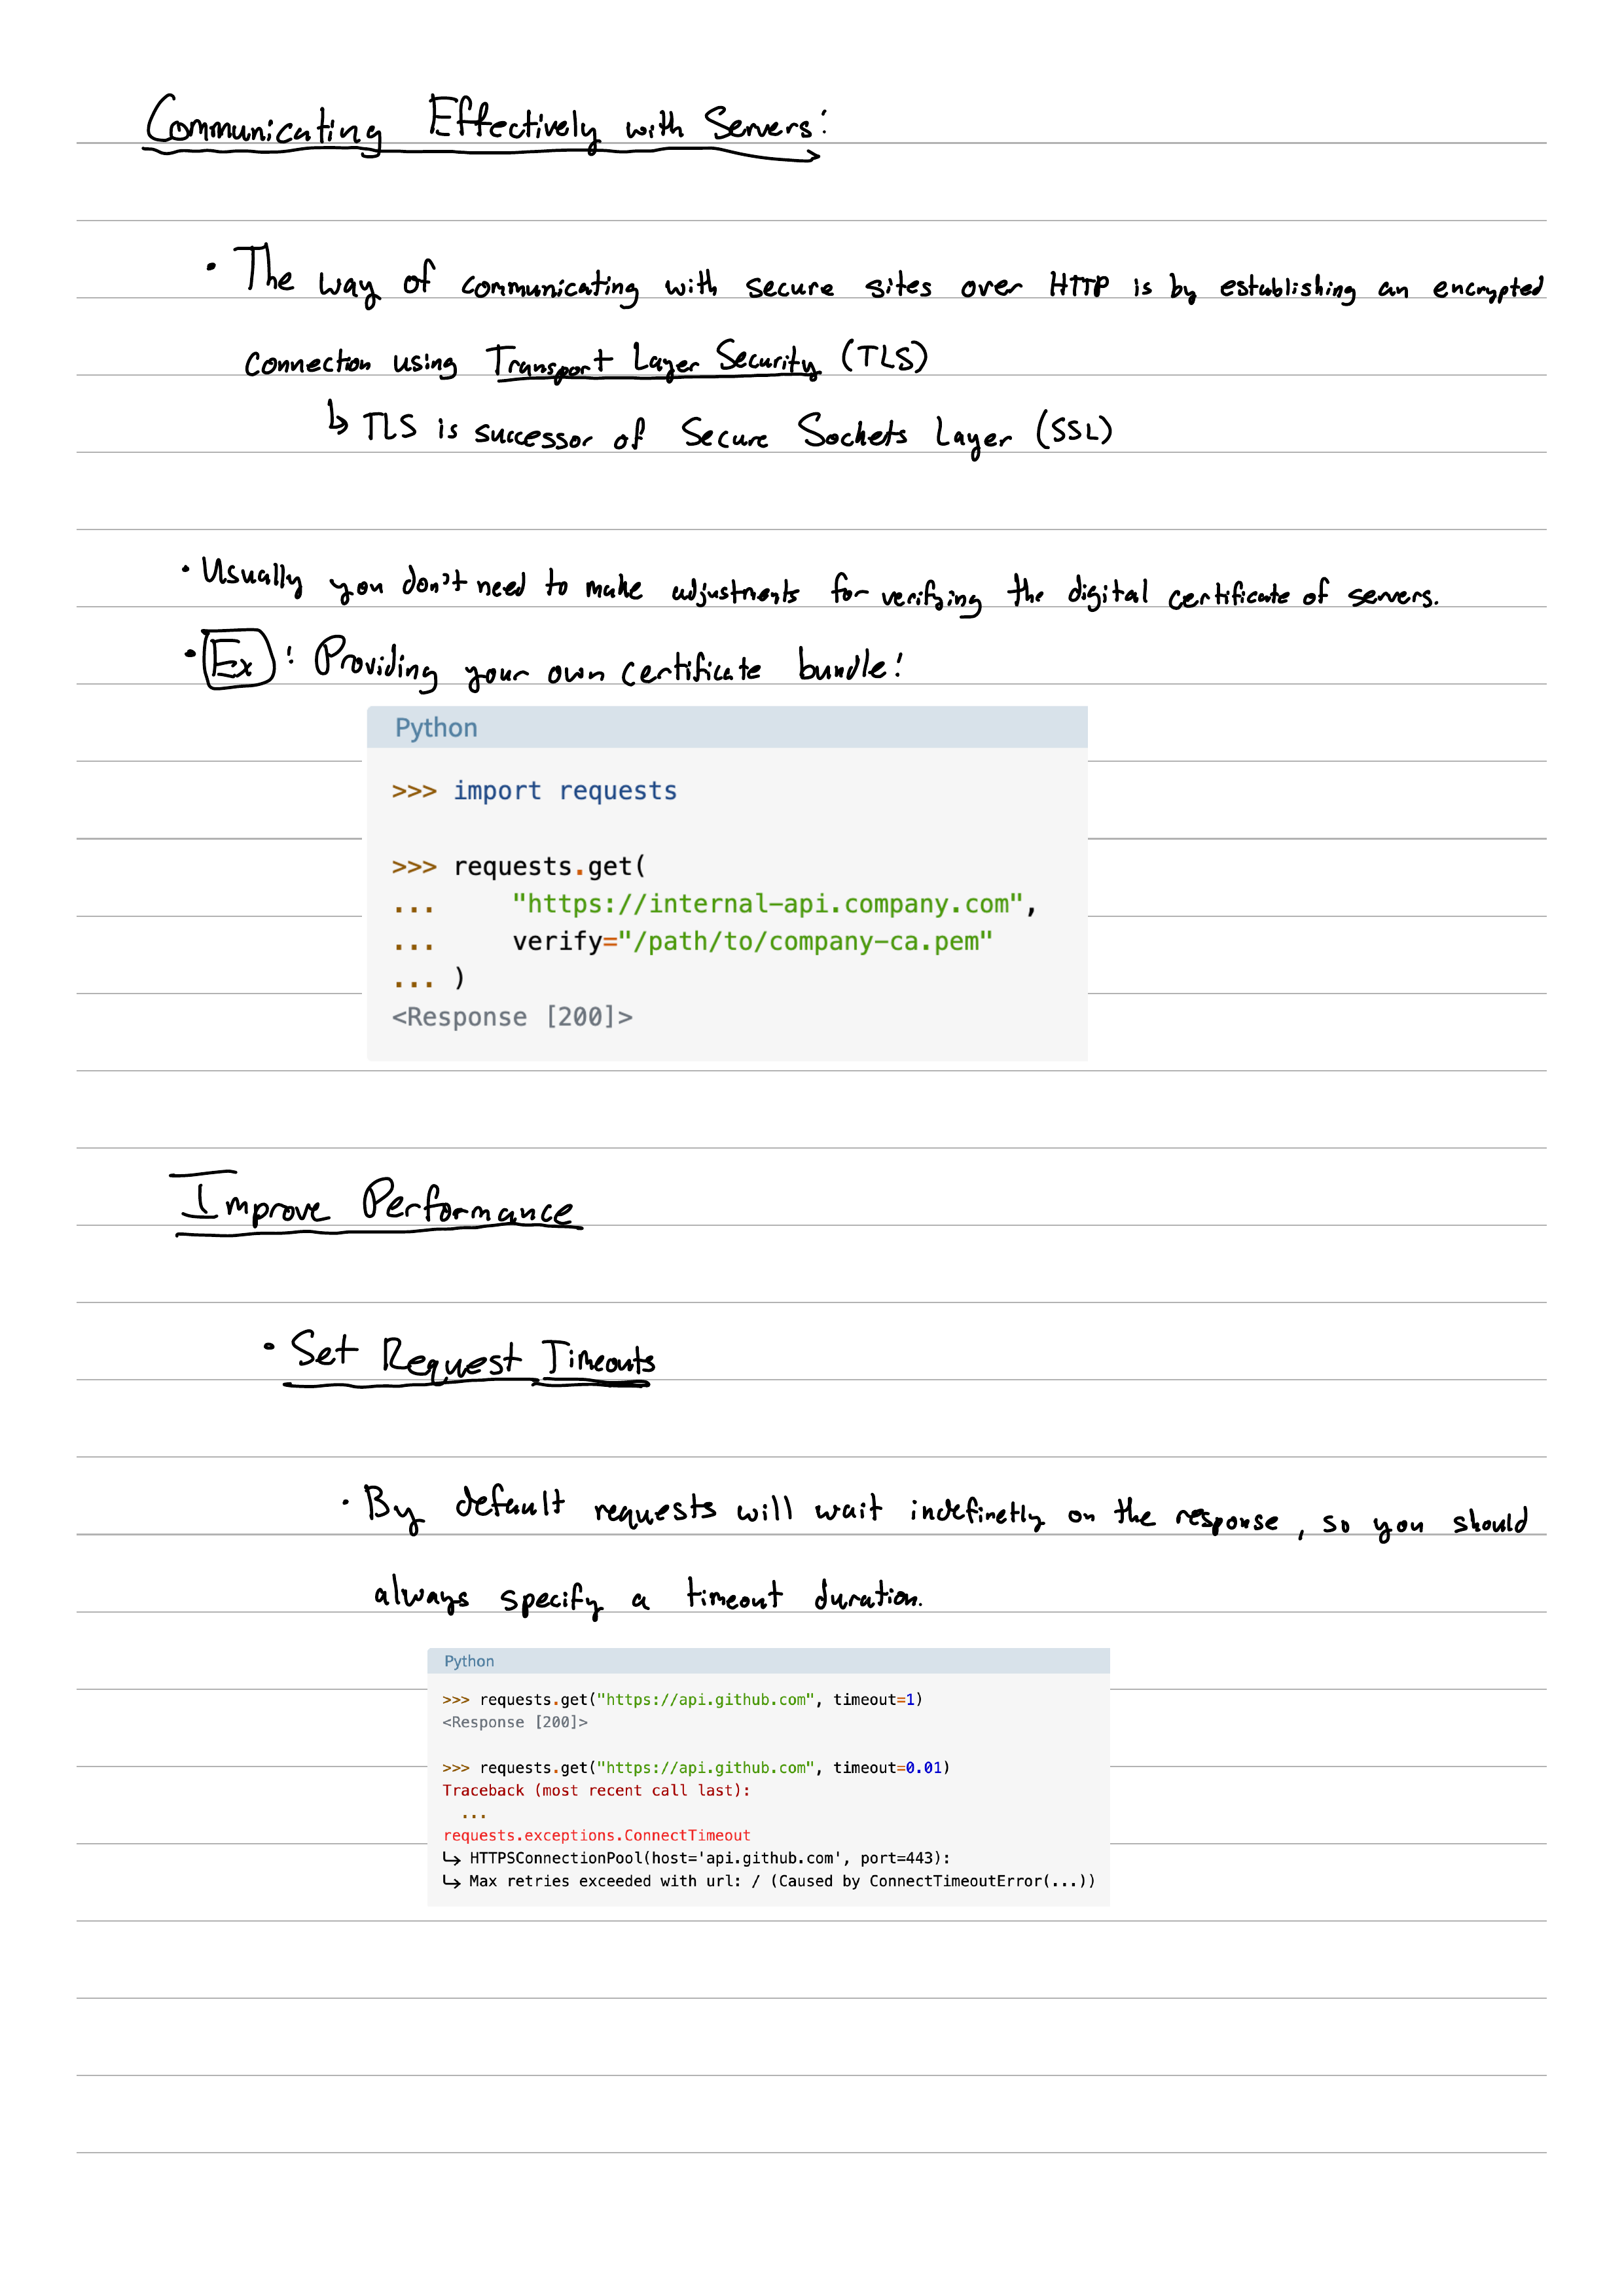 Communicating Effectively with Servers:
• The way of communicating with secure sites over HTTP is by establishing an encrypted
connection using Transport Layer Security (TLS)
↳ TLS is successor of Secure Sockets Layer (SSL)
• Usually you don't need to make adjustments for verifying the digital certificate of servers.
• Ex: Providing your own certificate bundle:
Python
>>> import requests
>>> requests.get(
...     "https://internal-api.company.com",
...     verify="/path/to/company-ca.pem"
... )
<Response [200]>
Improve Performance
• Set Request Timeouts
• By default requests will wait indefinetly on the response, so you should
always specify a timeout duration.
Python
>>> requests.get("https://api.github.com", timeout=1)
<Response [200]>
>>> requests.get("https://api.github.com", timeout=0.01)
Traceback (most recent call last):
  ...
requests.exceptions.ConnectTimeout
↳ HTTPSConnectionPool(host='api.github.com', port=443):
↳ Max retries exceeded with url: / (Caused by ConnectTimeoutError(...))